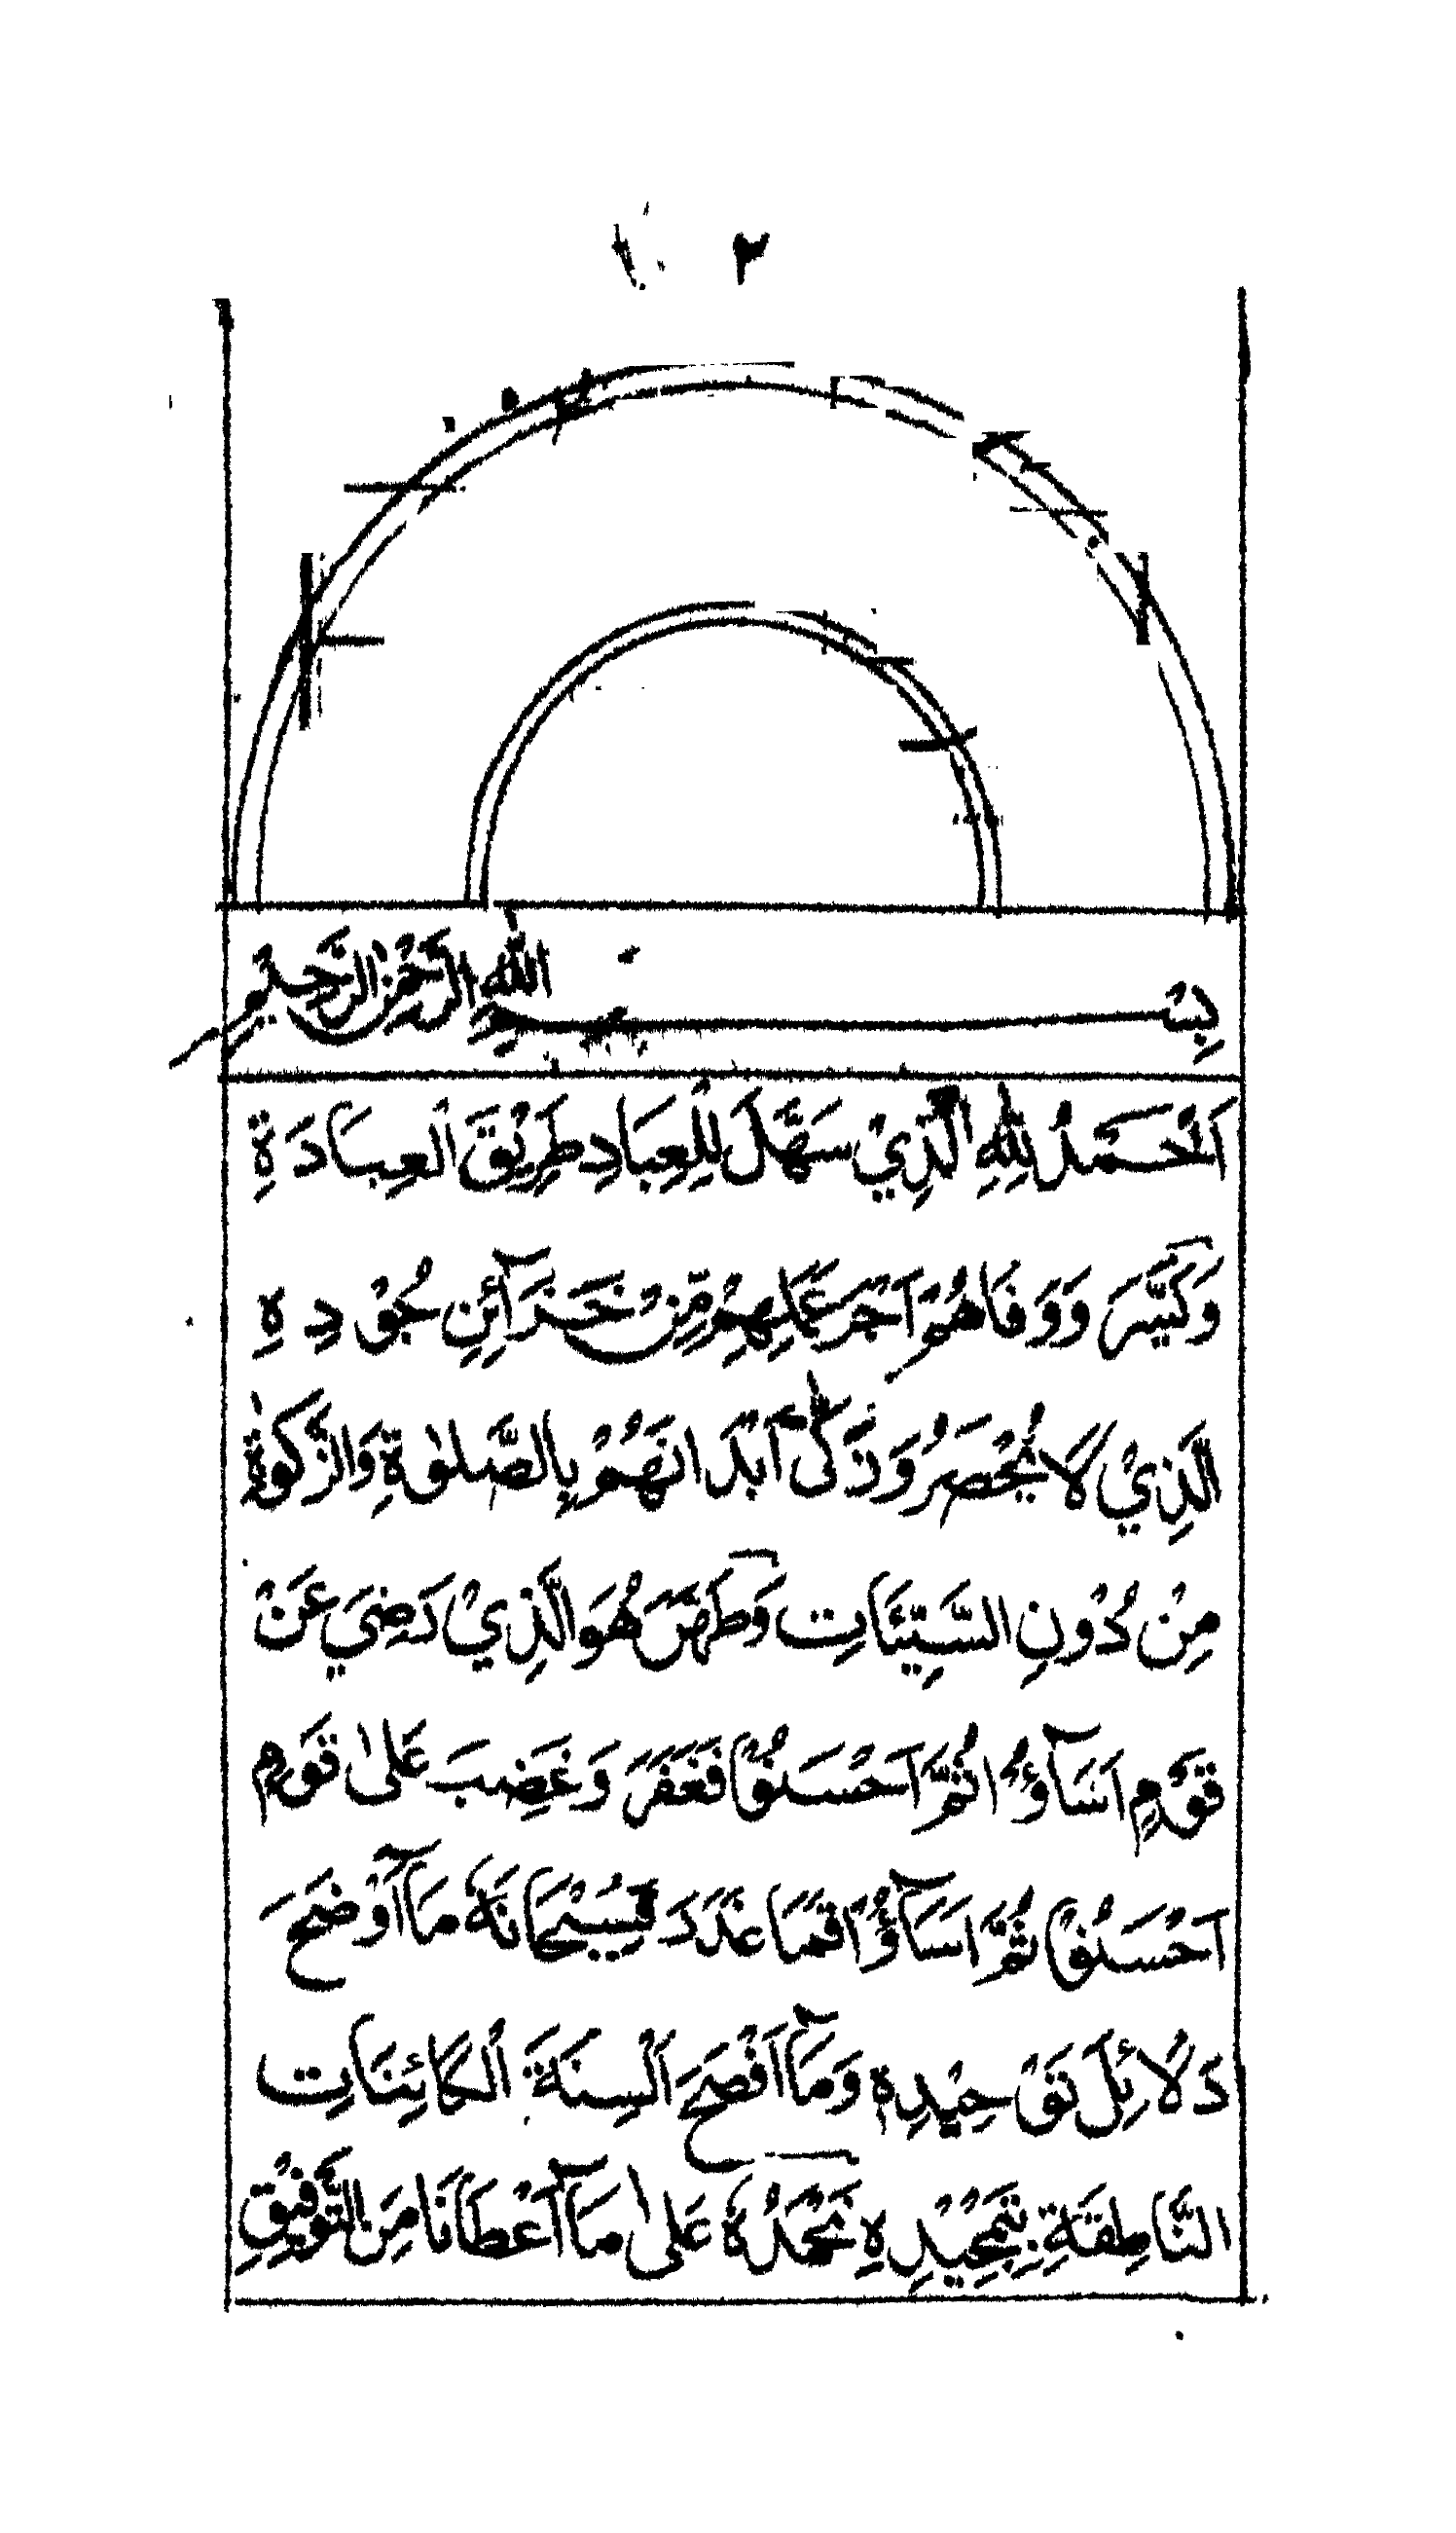 ٢
بِسْمِ اللّٰهِ الرَّحْمٰنِ الرَّحِيْمِ
اَلْحَمْدُ لِلّٰهِ الَّذِيْ سَهَّلَ لِلْعِبَادِ طَرِيْقَ الْعِبَادَةِ
وَكَيَّسَرَ وَوَفَاهُمْ اَجْرَ عَمَلِهِمْ مِّنْ خَزَآئِنِ جُوْدِهِ
الَّذِيْ لَا يُحْصَرُ وَزَكّٰى اَبْدَانَهُمْ بِالصَّلٰوةِ وَالزَّكٰوةِ
مِنْ دُوْنِ السَّيِّئَاتِ وَطَهَّرَ هُوَ الَّذِيْ رَضِيَ عَنْ
قَوْمٍ اَسَآؤُا ثُمَّ اَحْسَنُوْا فَغَفَرَ وَغَضِبَ عَلٰى قَوْمٍ
اَحْسَنُوْا ثُمَّ اَسَآؤُا فَمَا غَدَرَ فَسُبْحَانَهُ مَآ اَوْضَحَ
دَلَائِلَ تَوْحِيْدِهِ وَمَآ اَفْصَحَ اَلْسِنَةَ الْكَائِنَاتِ
النَّاطِقَةِ بِتَمْجِيْدِهِ نَحْمَدُهُ عَلٰى مَآ اَعْطَانَا مِنَ التَّوْفِيْقِ